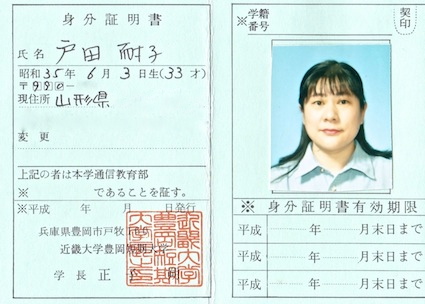 身分証明書
氏名 戸田 耐子
昭和35年 6月 3日生(33才)
〒990-
現住所 山形県
変更
上記の者は本学通信教育部
※ であることを証す。
※平成 年 月 日発行
兵庫県豊岡市戸牧
近畿大学豊岡
学長 正
※学籍番号
契印
※ 身分証明書有効期限
平成 年 月末日まで
平成 年 月末日まで
平成 年 月末日まで